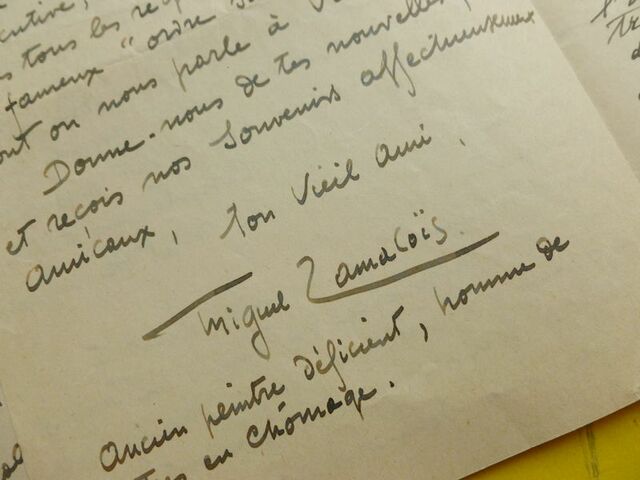 tous les
fameux "ordre
on nous parle à
Donne-nous de tes nouvelles,
et reçois nos souvenirs affectueusement
amicaux, ton vieil ami,
Miguel Zamacoïs.
ancien peintre déficient, homme de
en chômage.